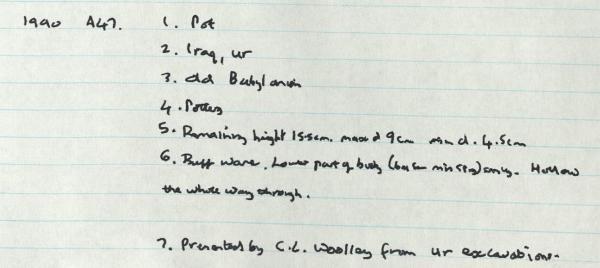 1990 A47. 1. Pot
2. Iraq, Ur
3. Old Babylonian
4. Pottery
5. Remaining height 15.5cm. max d 9cm min d. 4.5cm
6. Buff ware. Lower part of body (base missing) only. Hollow
the whole way through.
7. Presented by C.L. Woolley from Ur excavations.